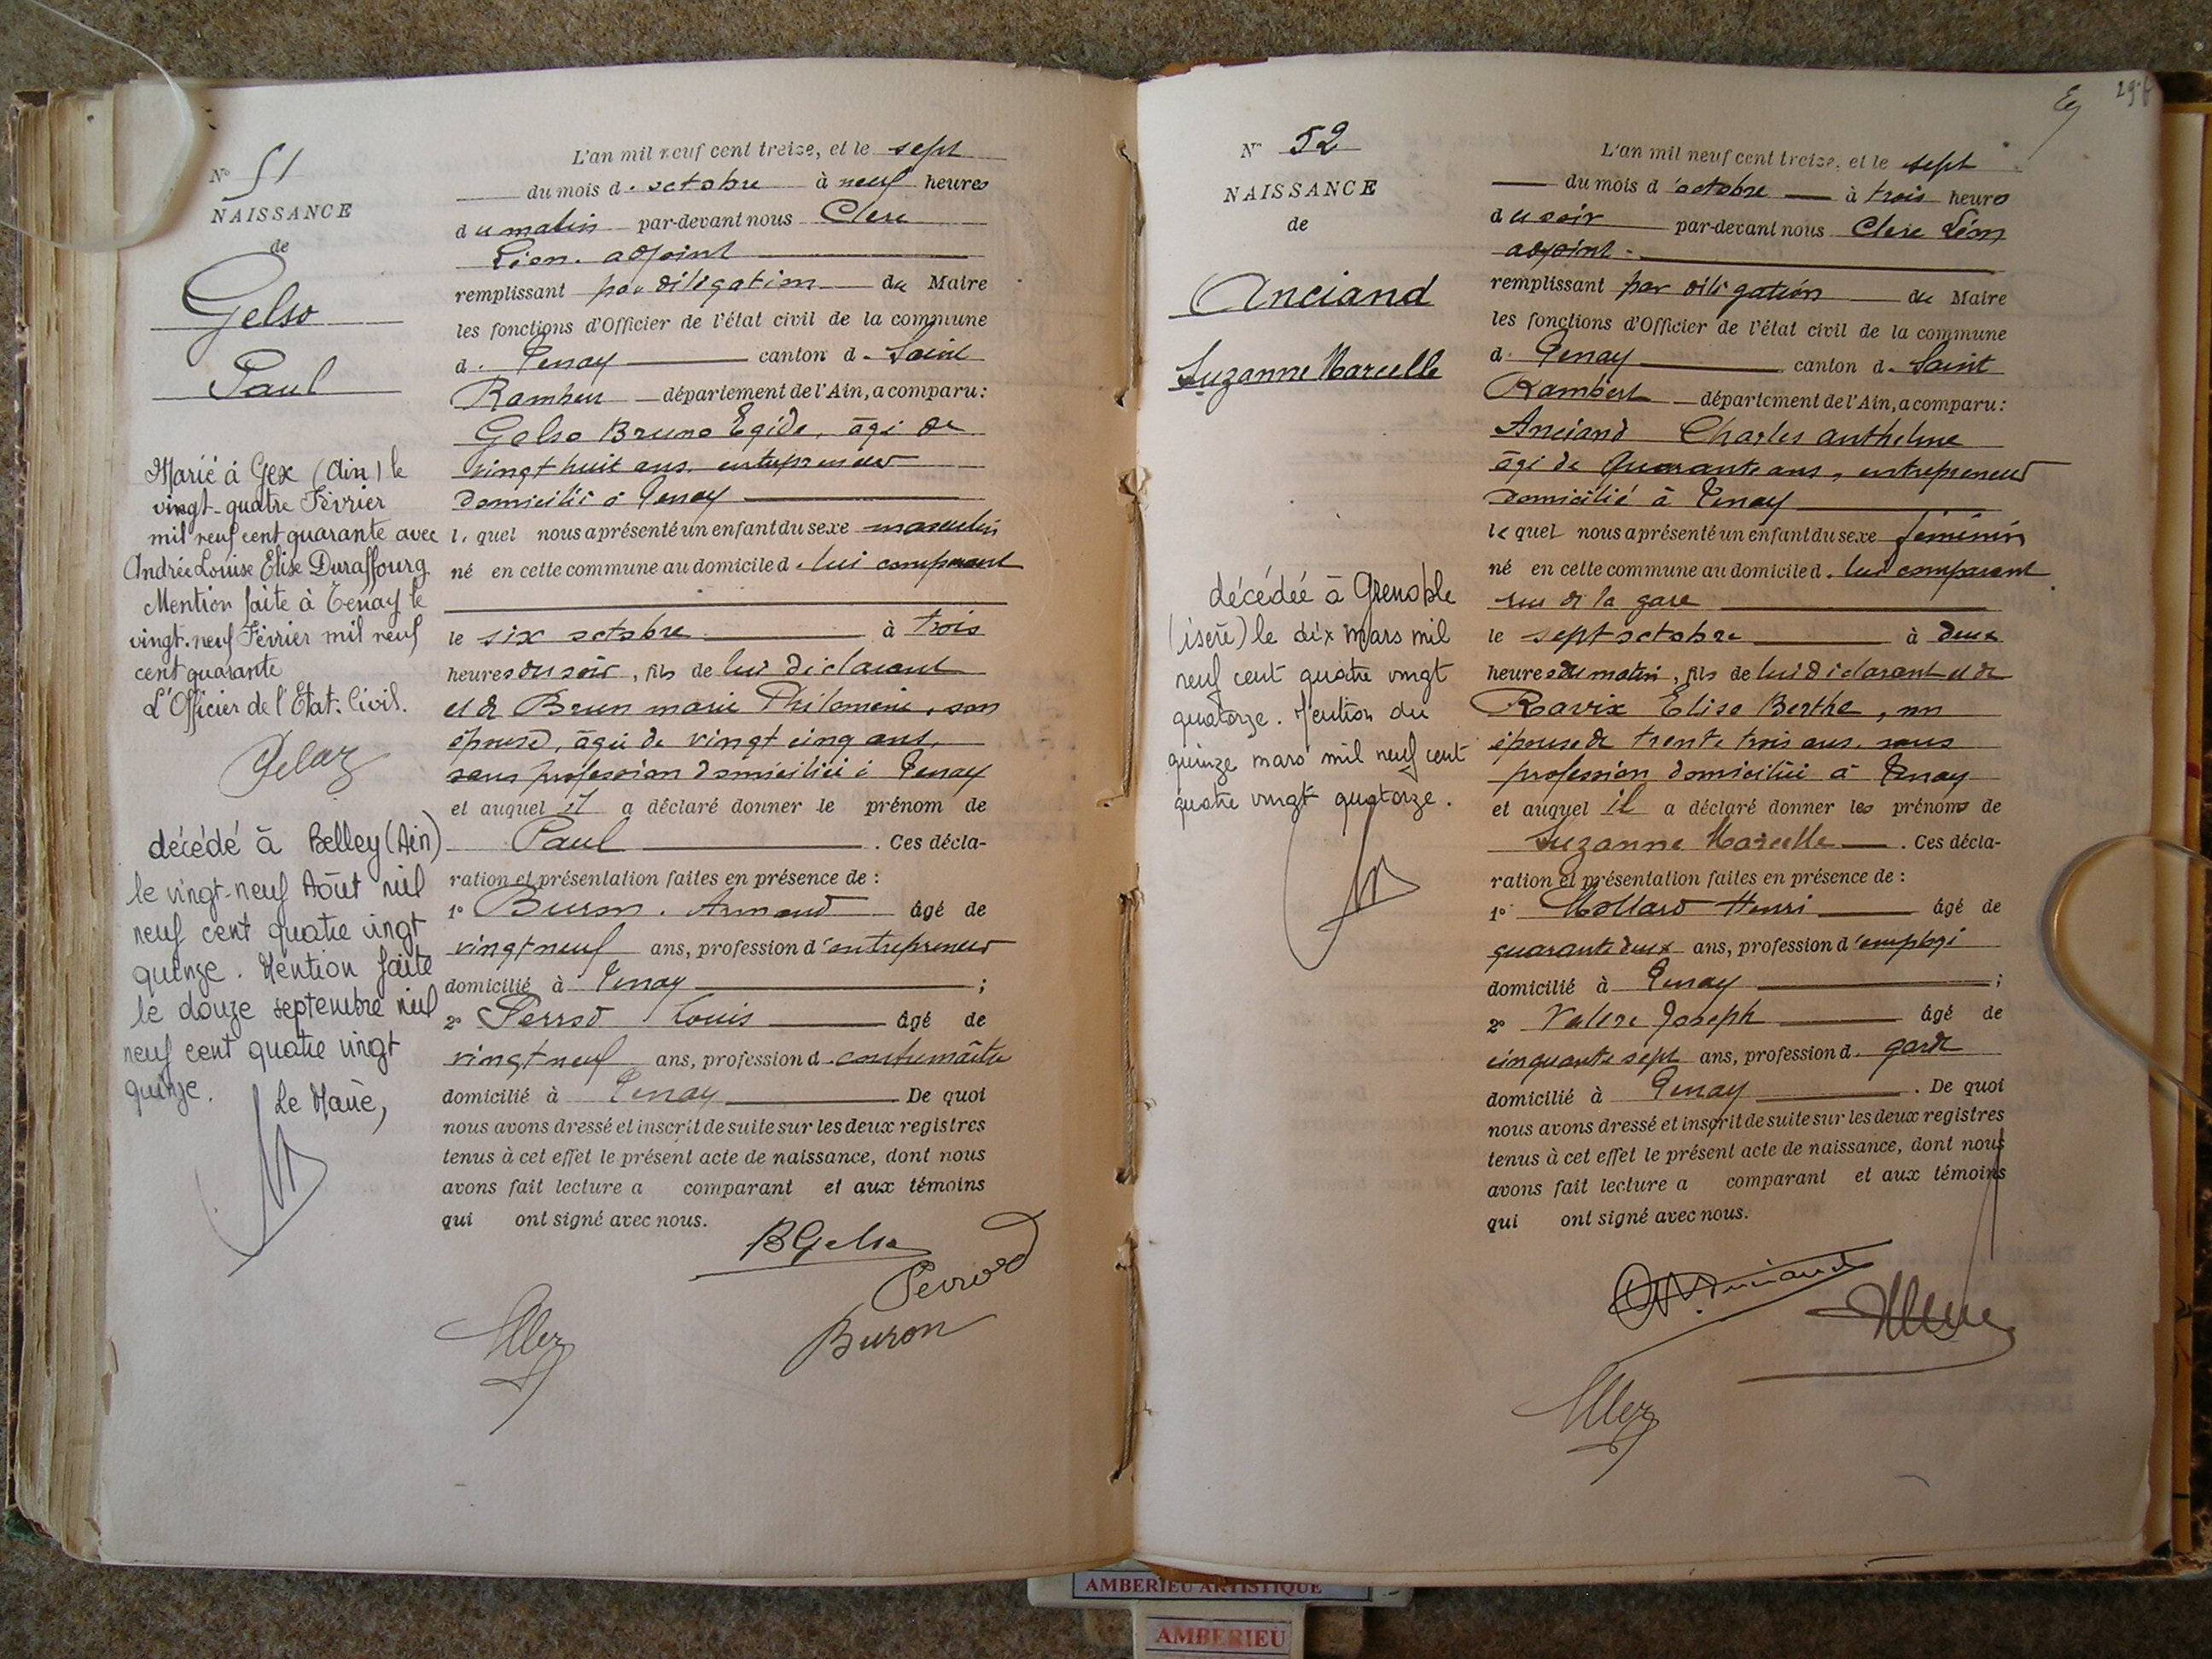 N° 51
NAISSANCE
de
Gelso
Paul
Marié à Gex (Ain) le
vingt-quatre Février
mil neuf cent quarante avec
Andrée Louise Elise Duraffourg
Mention faite à Tenay le
vingt-neuf Février mil neuf
cent quarante
L'Officier de l'Etat-Civil.
décédé à Belley (Ain)
le vingt-neuf Août mil
neuf cent quatre vingt
quinze. Mention faite
le douze septembre mil
neuf cent quatre vingt
quinze.
Le Maire,
L'an mil neuf cent treize, et le sept
du mois d'octobre à neuf heures
du matin par-devant nous Clerc
Léon adjoint
remplissant par délégation du Maire
les fonctions d'Officier de l'état civil de la commune
de Tenay canton de Saint
Rambert département de l'Ain, a comparu:
Gelso Bruno Egide, âgé de
vingt huit ans, entrepreneur
domicilié à Tenay
lequel nous a présenté un enfant du sexe masculin
né en cette commune au domicile de lui comparant
le six octobre à trois
heures du soir, fils de lui déclarant
et de Brun marie Philomène, son
épouse, âgée de vingt cinq ans,
sans profession domiciliée à Tenay
et auquel il a déclaré donner le prénom de
Paul . Ces décla-
ration et présentation faites en présence de :
1° Buron Armand âgé de
vingt neuf ans, profession d'entrepreneur
domicilié à Tenay ;
2° Perrod Louis âgé de
vingt neuf ans, profession de contremaître
domicilié à Tenay De quoi
nous avons dressé et inscrit de suite sur les deux registres
tenus à cet effet le présent acte de naissance, dont nous
avons fait lecture a comparant et aux témoins
qui ont signé avec nous.
BGelso
Perrod
Buron
296
N° 52
NAISSANCE
de
Anciand
Suzanne Marcelle
décédée à Grenoble
(isère) le dix mars mil
neuf cent quatre vingt
quatorze. Mention du
quinze mars mil neuf cent
quatre vingt quatorze.
L'an mil neuf cent treize, et le sept
du mois d'octobre à trois heures
du soir par-devant nous Clerc Léon
adjoint
remplissant par délégation du Maire
les fonctions d'Officier de l'état civil de la commune
de Tenay canton de Saint
Rambert département de l'Ain, a comparu:
Anciand Charles anthelme
âgé de quarante ans, entrepreneur
domicilié à Tenay
lequel nous a présenté un enfant du sexe féminin
né en cette commune au domicile de lui comparant
rue de la gare
le sept octobre à deux
heures du matin, fils de lui déclarant et de
Ravix Elise Berthe, son
épouse de trente trois ans, sans
profession domiciliée à Tenay
et auquel il a déclaré donner les prénoms de
Suzanne Marcelle . Ces décla-
ration et présentation faites en présence de :
1° Mollard Henri âgé de
quarante deux ans, profession d'employé
domicilié à Tenay ;
2° Valère Joseph âgé de
cinquante sept ans, profession de garde
domicilié à Tenay . De quoi
nous avons dressé et inscrit de suite sur les deux registres
tenus à cet effet le présent acte de naissance, dont nous
avons fait lecture a comparant et aux témoins
qui ont signé avec nous.
Anciand
AMBERIEU ARTISTIQUE
AMBERIEU